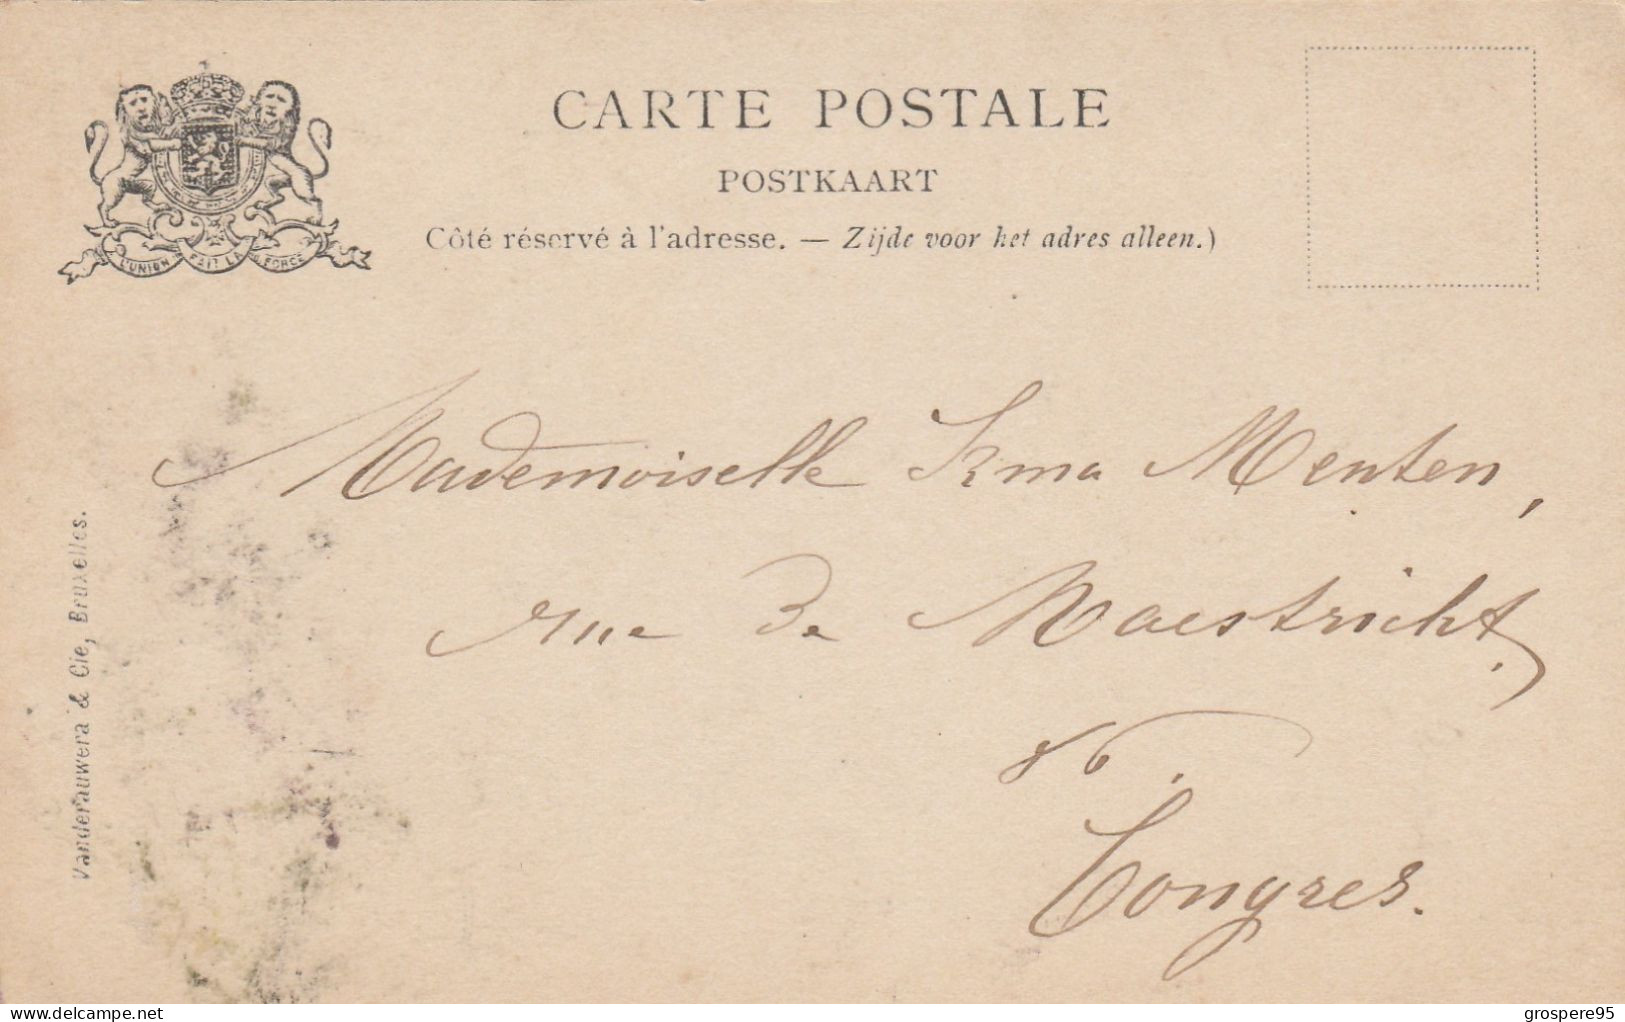 CARTE POSTALE
POSTKAART
Côté réservé à l'adresse. — Zijde voor het adres alleen.)
L'UNION FAIT LA FORCE
Mademoiselle Irma Menten,
rue de Maestricht,
Tongres.
Vanderauwera & Cie, Bruxelles.
www.delcampe.net
grospere95